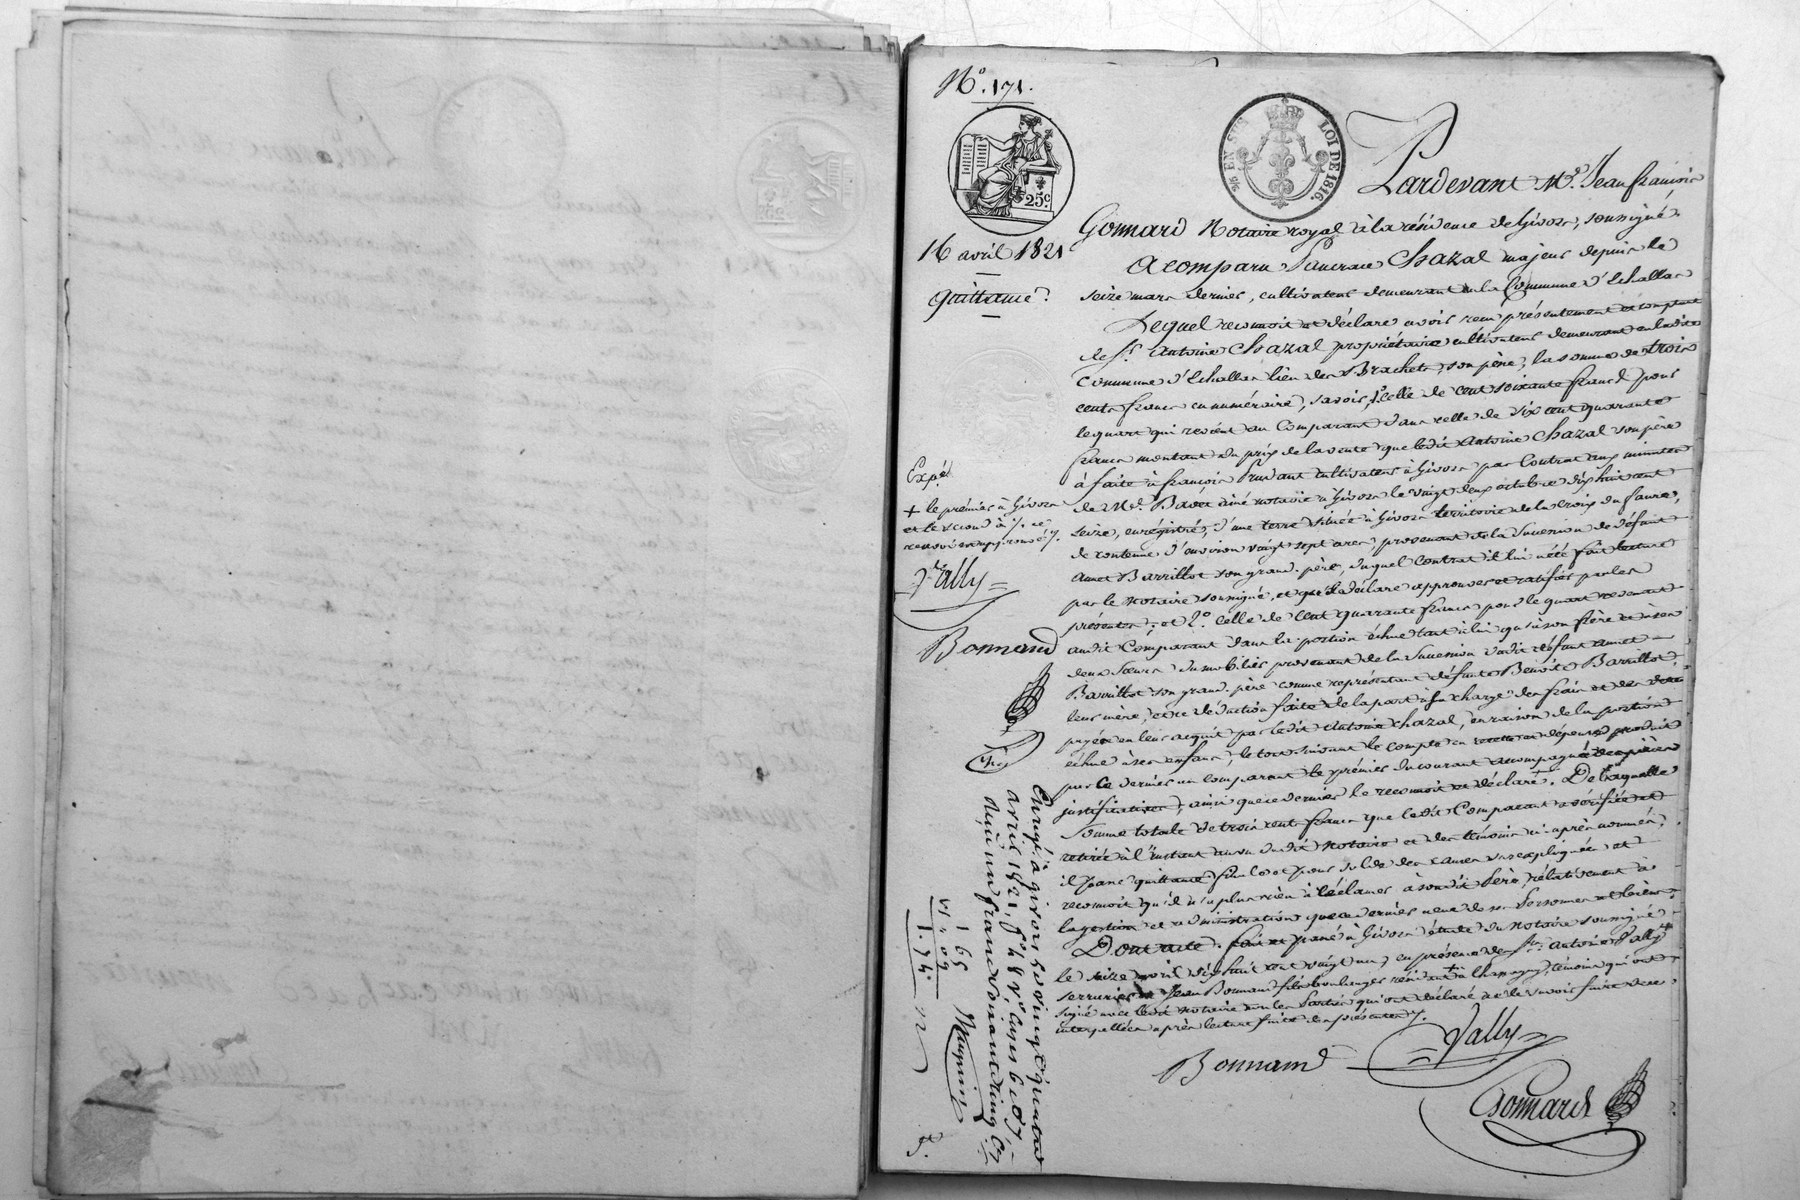 N.º 171.
25.c
EN SUS
LOI DE 1816.
16 avril 1821
quittance.
Pardevant M.e Jean françois
Gonnard Notaire royal à la résidence de Givors, soussigné.
A comparu Chazal majeur depuis le
seize mars dernier, cultivateur demeurant en la Commune d'Echallas
Lequel reconnoit et déclare avoir reçu présentement et comptant
de S.r Antoine Chazal propriétaire cultivateur demeurant en ladite
Commune d'Echallas lieu des Brachets, son père, la somme de trois
cents francs en numéraire, savoir, 1.º celle de cent soixante francs pour
le quart qui revient au Comparant dans celle de six cent quarante
francs montant du prix de la vente que ledit Antoine Chazal son père
à faite à françois cultivateur à Givors par Contrat aux minutes
de M.e ainé notaire à Givors le vingt deux octobre dix huit cent
seize, enregistré, d'une terre située à Givors territoire de la Croix du faure,
de contenue d'environ vingt sept ares, provenant de la Succession de défunt
Amet Barrillot son grand-père, duquel Contrat il lui a été fait lecture
par le Notaire soussigné, et qu'il déclare approuver et ratifier par les
présentes; et 2.º celle de Cent quarante francs pour le quart revenant
audit Comparant dans la portion échue tant à lui qu'à son frère et à ses
deux Sœurs du mobilier provenant de la Succession dudit défunt Amet
Barrillot son grand-père comme représentant défunte Benoite Barrillot
leur mère, et ce déduction faite de la part à sa charge des frais et des
payés en leur acquit par ledit Antoine Chazal, en raison de la portion
échue à ses enfans, le tout suivant le compte en recette et dépense produit
par ce dernier au Comparant le premier du courant accompagné de pièces
justificatives, ainsi que ce dernier le reconnoit et déclare. De laquelle
somme totale de trois cents francs que ledit Comparant a vérifiée et
retirée à l'instant au vu dudit Notaire et des témoins ci-après nommés,
il passe quittance finale et pour solde des causes susexpliquées et
reconnoit qu'il n'a plus rien à réclamer à son dit Père, relativement à
la gestion et administration que ce dernier a eue de sa Personne et biens.
Dont acte, fait et passé à Givors étude du Notaire soussigné
le seize avril dix huit cent vingt un, en présence de S.rs Antoine Vally
serrurier et Jean Bonnand fils boulanger résidant + à témoins qui ont
signé avec ledit Notaire non les Parties qui ont déclaré ne le savoir faire de ce
interpellées après lecture faite des présentes /.
Vally
Bonnand
Gonnard
Expé.
+ le premier à Givors
et le second à /. ce
renvoi est approuvé /.
Vally
Bonnand
Enregt. à givors le vingt quatre
avril 1821, f.º 48 v.º Cases 6 et 7
reçu un franc soixante cinq c.
1 65
1. 74